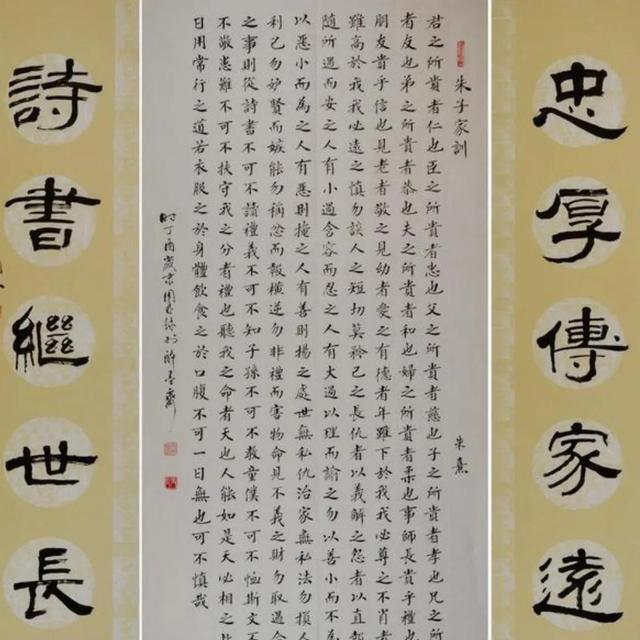 忠厚傳家遠
朱子家訓
朱熹
君之所貴者仁也臣之所貴者忠也父之所貴者慈也子之所貴者孝也兄之所
者友也弟之所貴者恭也夫之所貴者和也婦之所貴者柔也事師長貴乎禮也
朋友貴乎信也見老者敬之見幼者愛之有德者年雖下於我我必尊之不肖者
雖高於我我必遠之慎勿談人之短切莫矜己之長仇者以義解之怨者以直報
隨所遇而安之人有小過含容而忍之人有大過以理而諭之勿以善小而不為
以惡小而為之人有惡則掩之人有善則揚之處世無私仇治家無私法勿損人
利己勿妒賢而嫉能勿稱忿而報橫逆勿非禮而害物命見不義之財勿取遇合
之事則從詩書不可不讀禮義不可不知子孫不可不教童僕不可不恤斯文不
不敬患難不可不扶守我之分者禮也聽我之命者天也人能如是天必相之此
日用常行之道若衣服之於身體飲食之於口腹不可一日無也可不慎哉
時丁酉歲
詩書繼世長